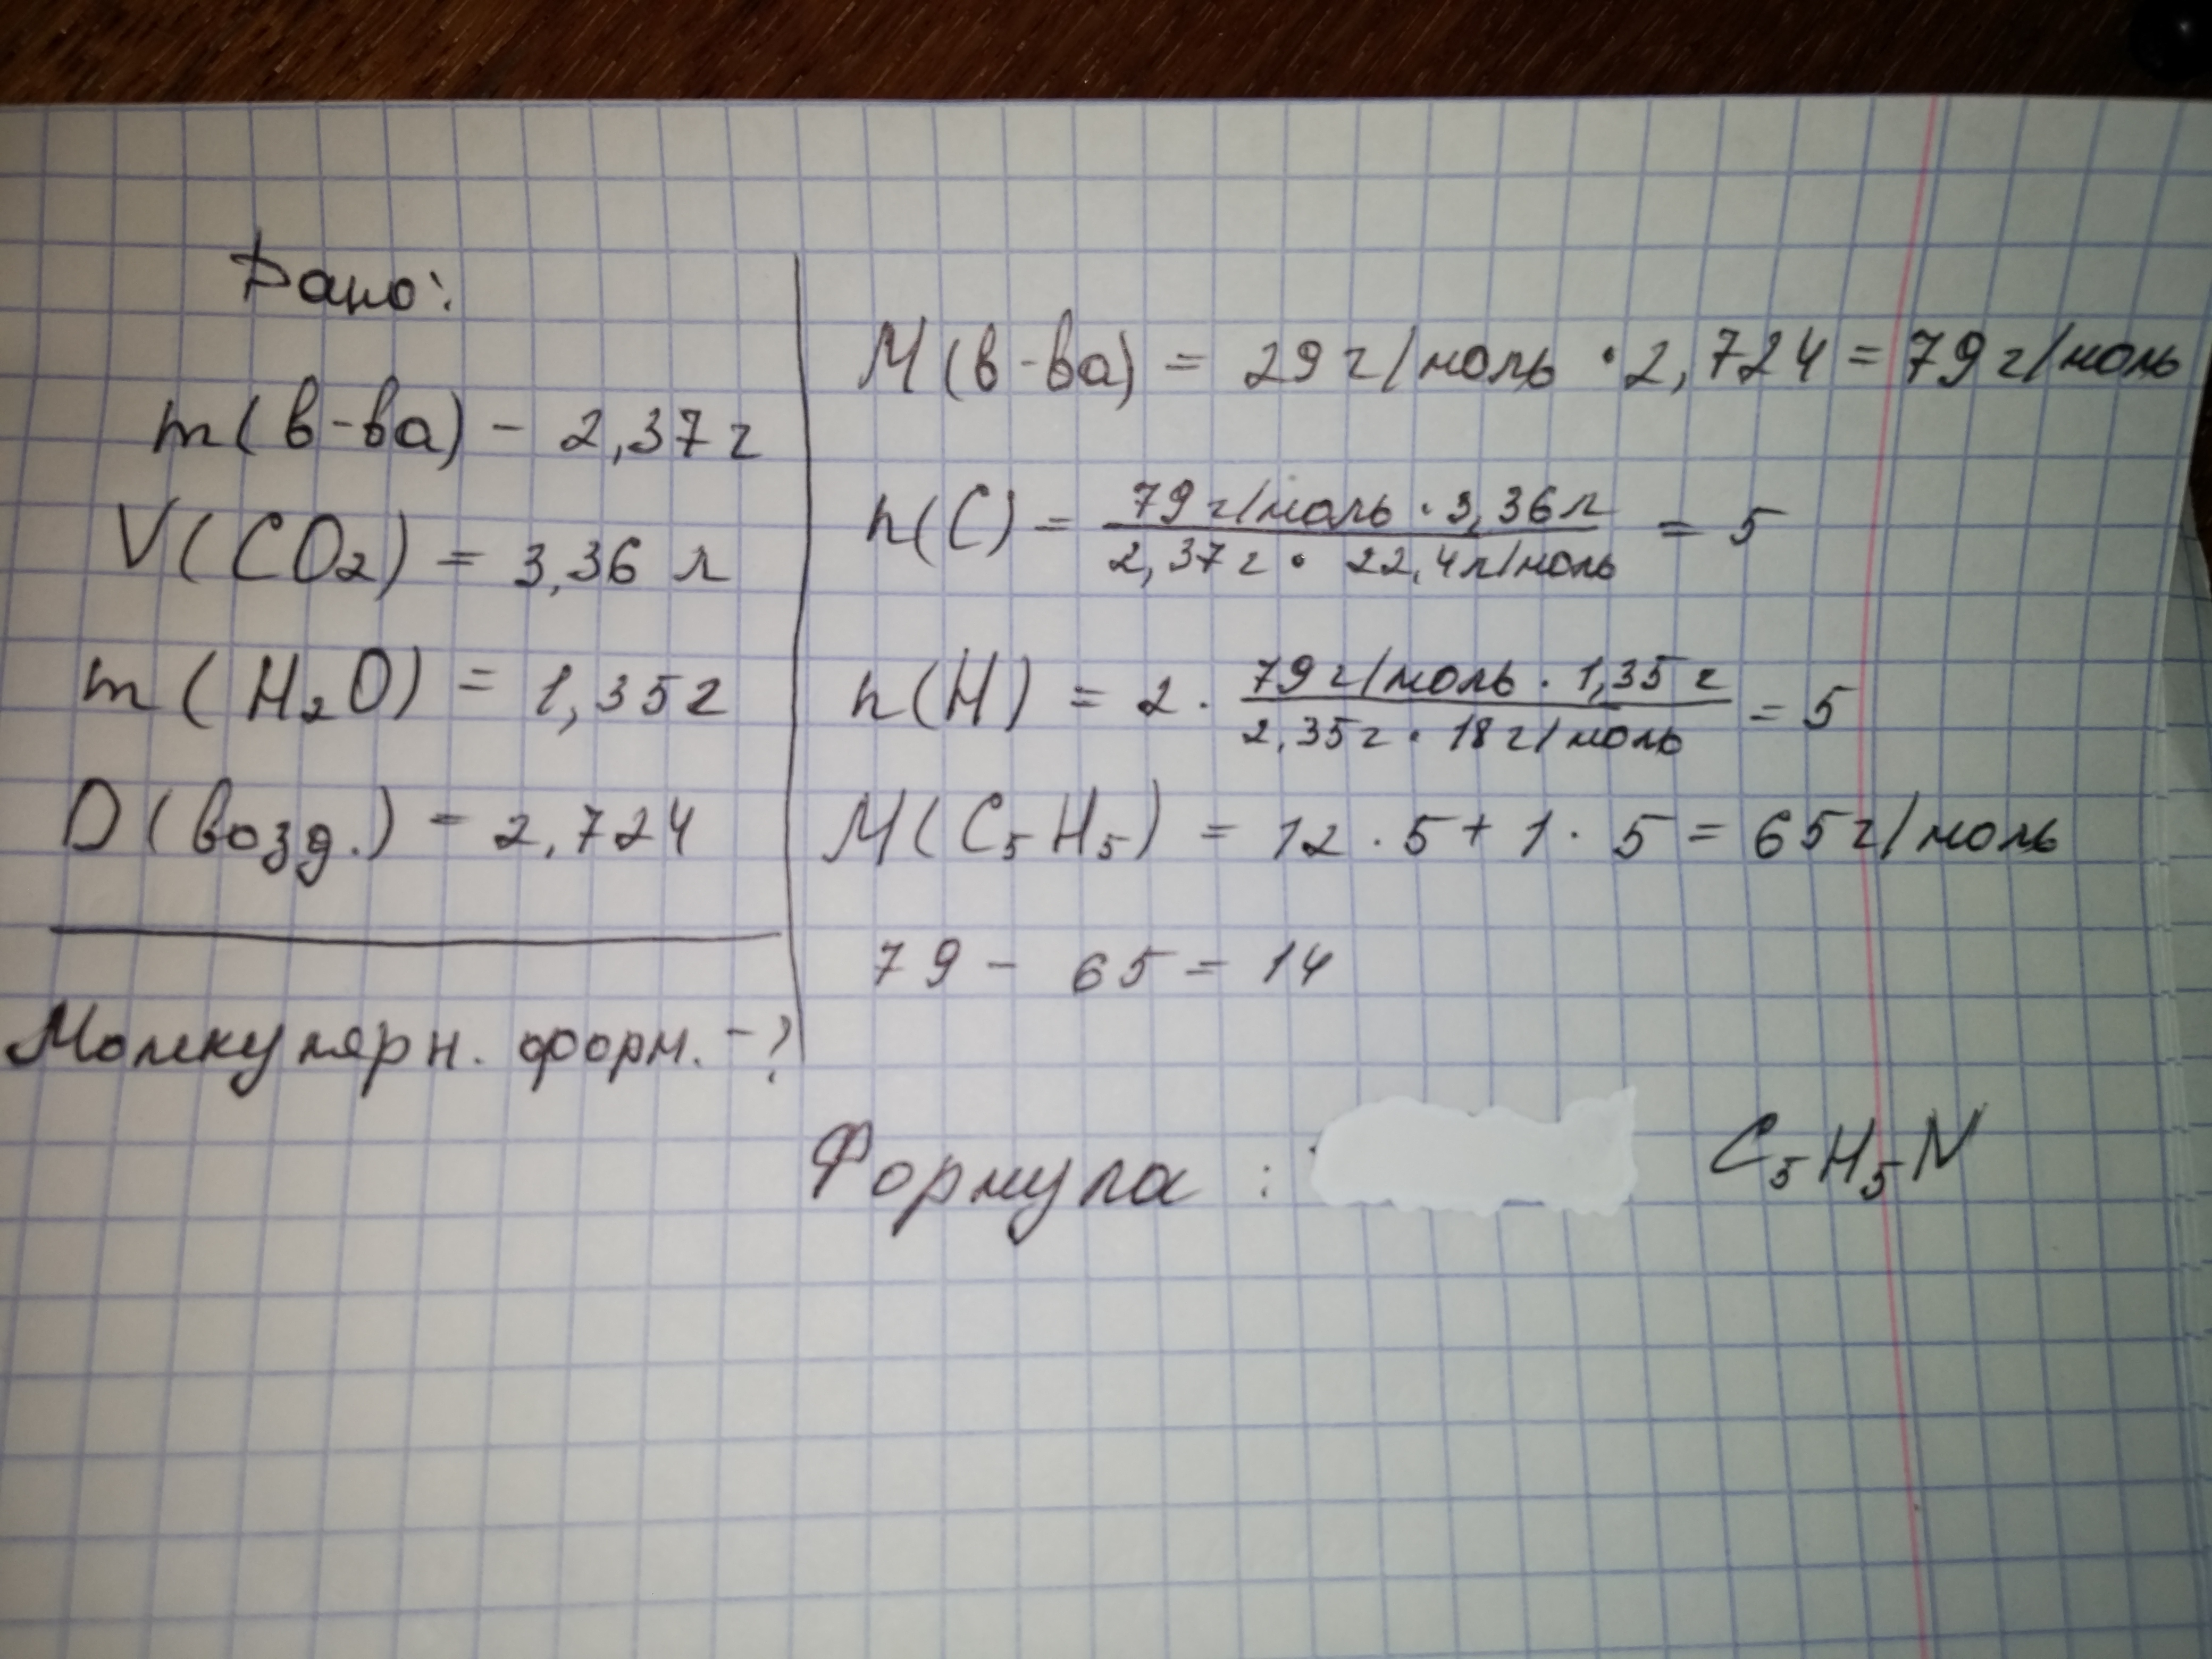 Дано:
m(в-ва) - 2,37 г
V(CO₂) = 3,36 л
m(H₂O) = 1,35 г
D(возд.) = 2,724
Молекулярн. форм. - ?
M(в-ва) = 29 г/моль · 2,724 = 79 г/моль
n(C) = 79 г/моль · 3,36 л / 2,37 г · 22,4 л/моль = 5
n(H) = 2 · 79 г/моль · 1,35 г / 2,35 г · 18 г/моль = 5
M(C₅H₅) = 12 · 5 + 1 · 5 = 65 г/моль
79 - 65 = 14
Формула : C₅H₅N